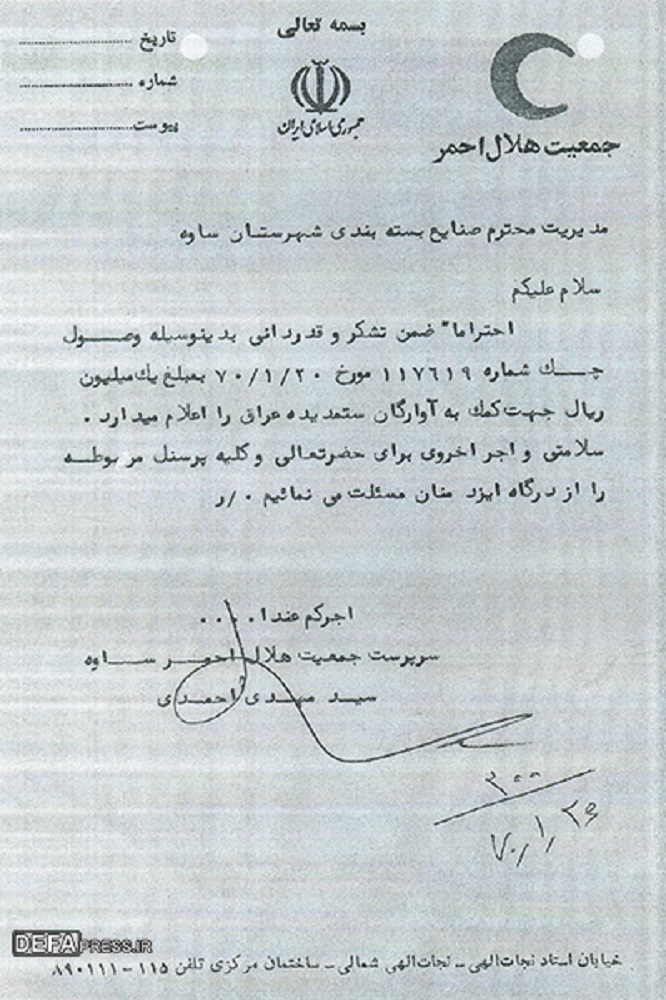 بسمه تعالی
جمهوری اسلامی ایران
جمعیت هلال احمر
تاریخ
شماره
پیوست
مدیریت محترم صنایع بسته بندی شهرستان ساوه
سلام علیکم
احتراما" ضمن تشکر و قدردانی بدینوسیله وصول
چک شماره ۱۱۷۶۱۹ مورخ ۷۰/۱/۲۰ بمبلغ یک میلیون
ریال جهت کمک به آوارگان ستمدیده عراق را اعلام میدارد .
سلامتی و اجر اخروی برای حضرتعالی و کلیه پرسنل مربوطه
را از درگاه ایزد منان مسئلت می نمائیم ۰/ر
اجرکم عندا....
سرپرست جمعیت هلال احمر ساوه
سید مهدی احمدی
۳۰۰
۷۰/۱/۲۶
خیابان استاد نجات‌الهی ـ نجات‌الهی شمالی ـ ساختمان مرکزی تلفن ۱۱۵ – ۸۹۰۱۱۱
DEFAPRESS.IR